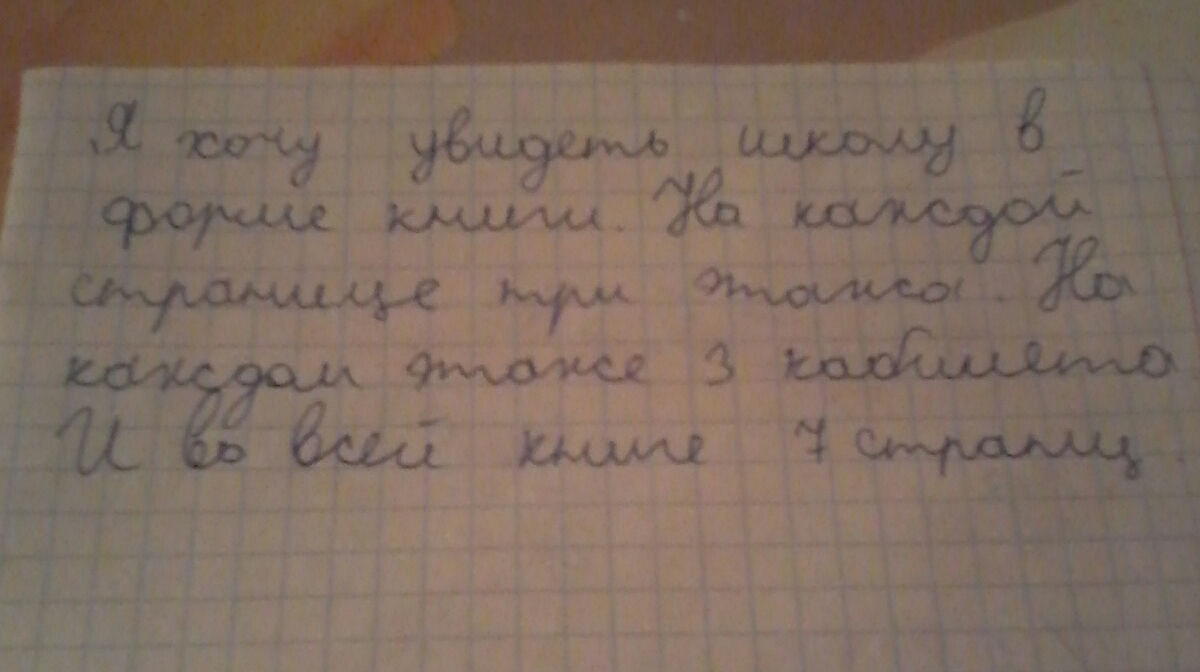 Я хочу увидеть школу в
форме книги. На каждой
странице три этажа. На
каждом этаже 3 кабинета
И во всей книге 7 страниц.